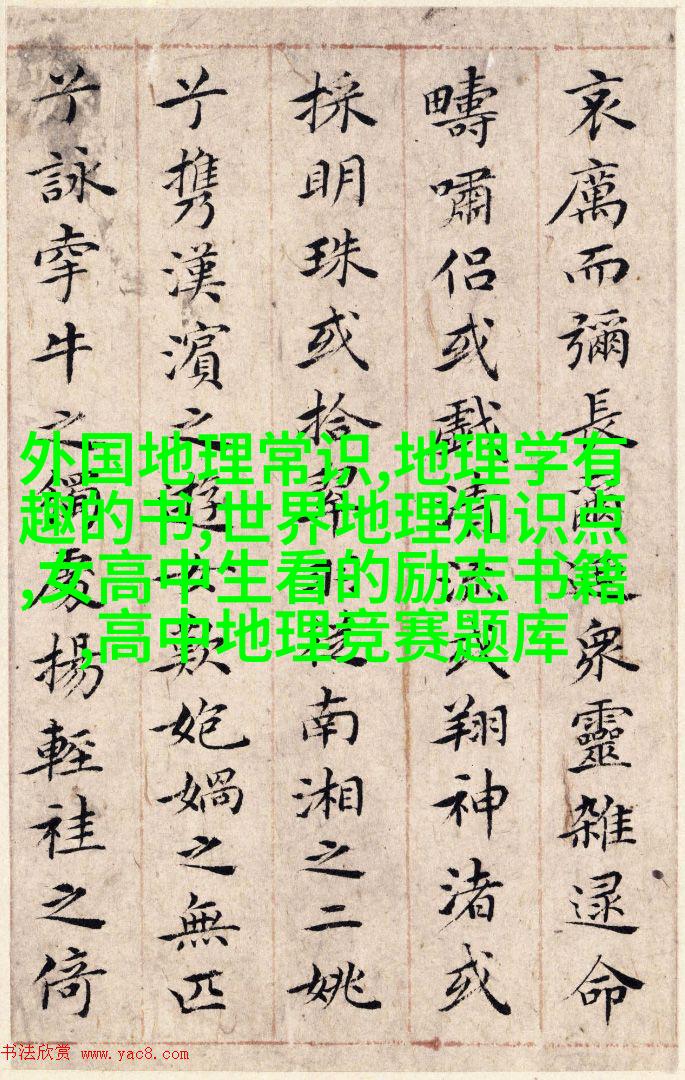 哀厲而彌長爾迺衆靈雜遝命
疇嘯侣或戲清流或翔神渚或
採明珠或拾翠羽從南湘之二姚
兮携漢濱之遊女歎媧之無匹
兮詠牽牛之獨處揚輕袿之倚
外国地理常识,地理学有
趣的书,世界地理知识点
,女高中生看的励志书籍
,高中地理竞赛题库
书法欣赏 www.yac8.com